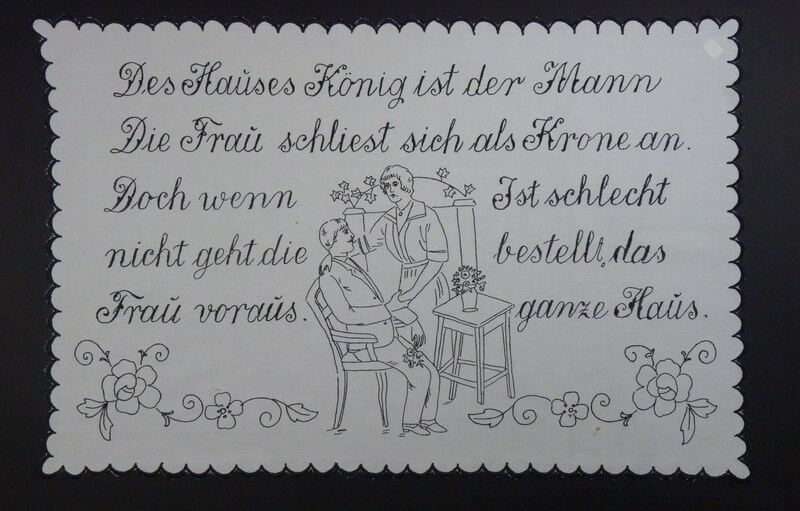 Des Hauses König ist der Mann
Die Frau schliest sich als Krone an.
Doch wenn
nicht geht die
Frau voraus.
Ist schlecht
bestellt, das
ganze Haus.